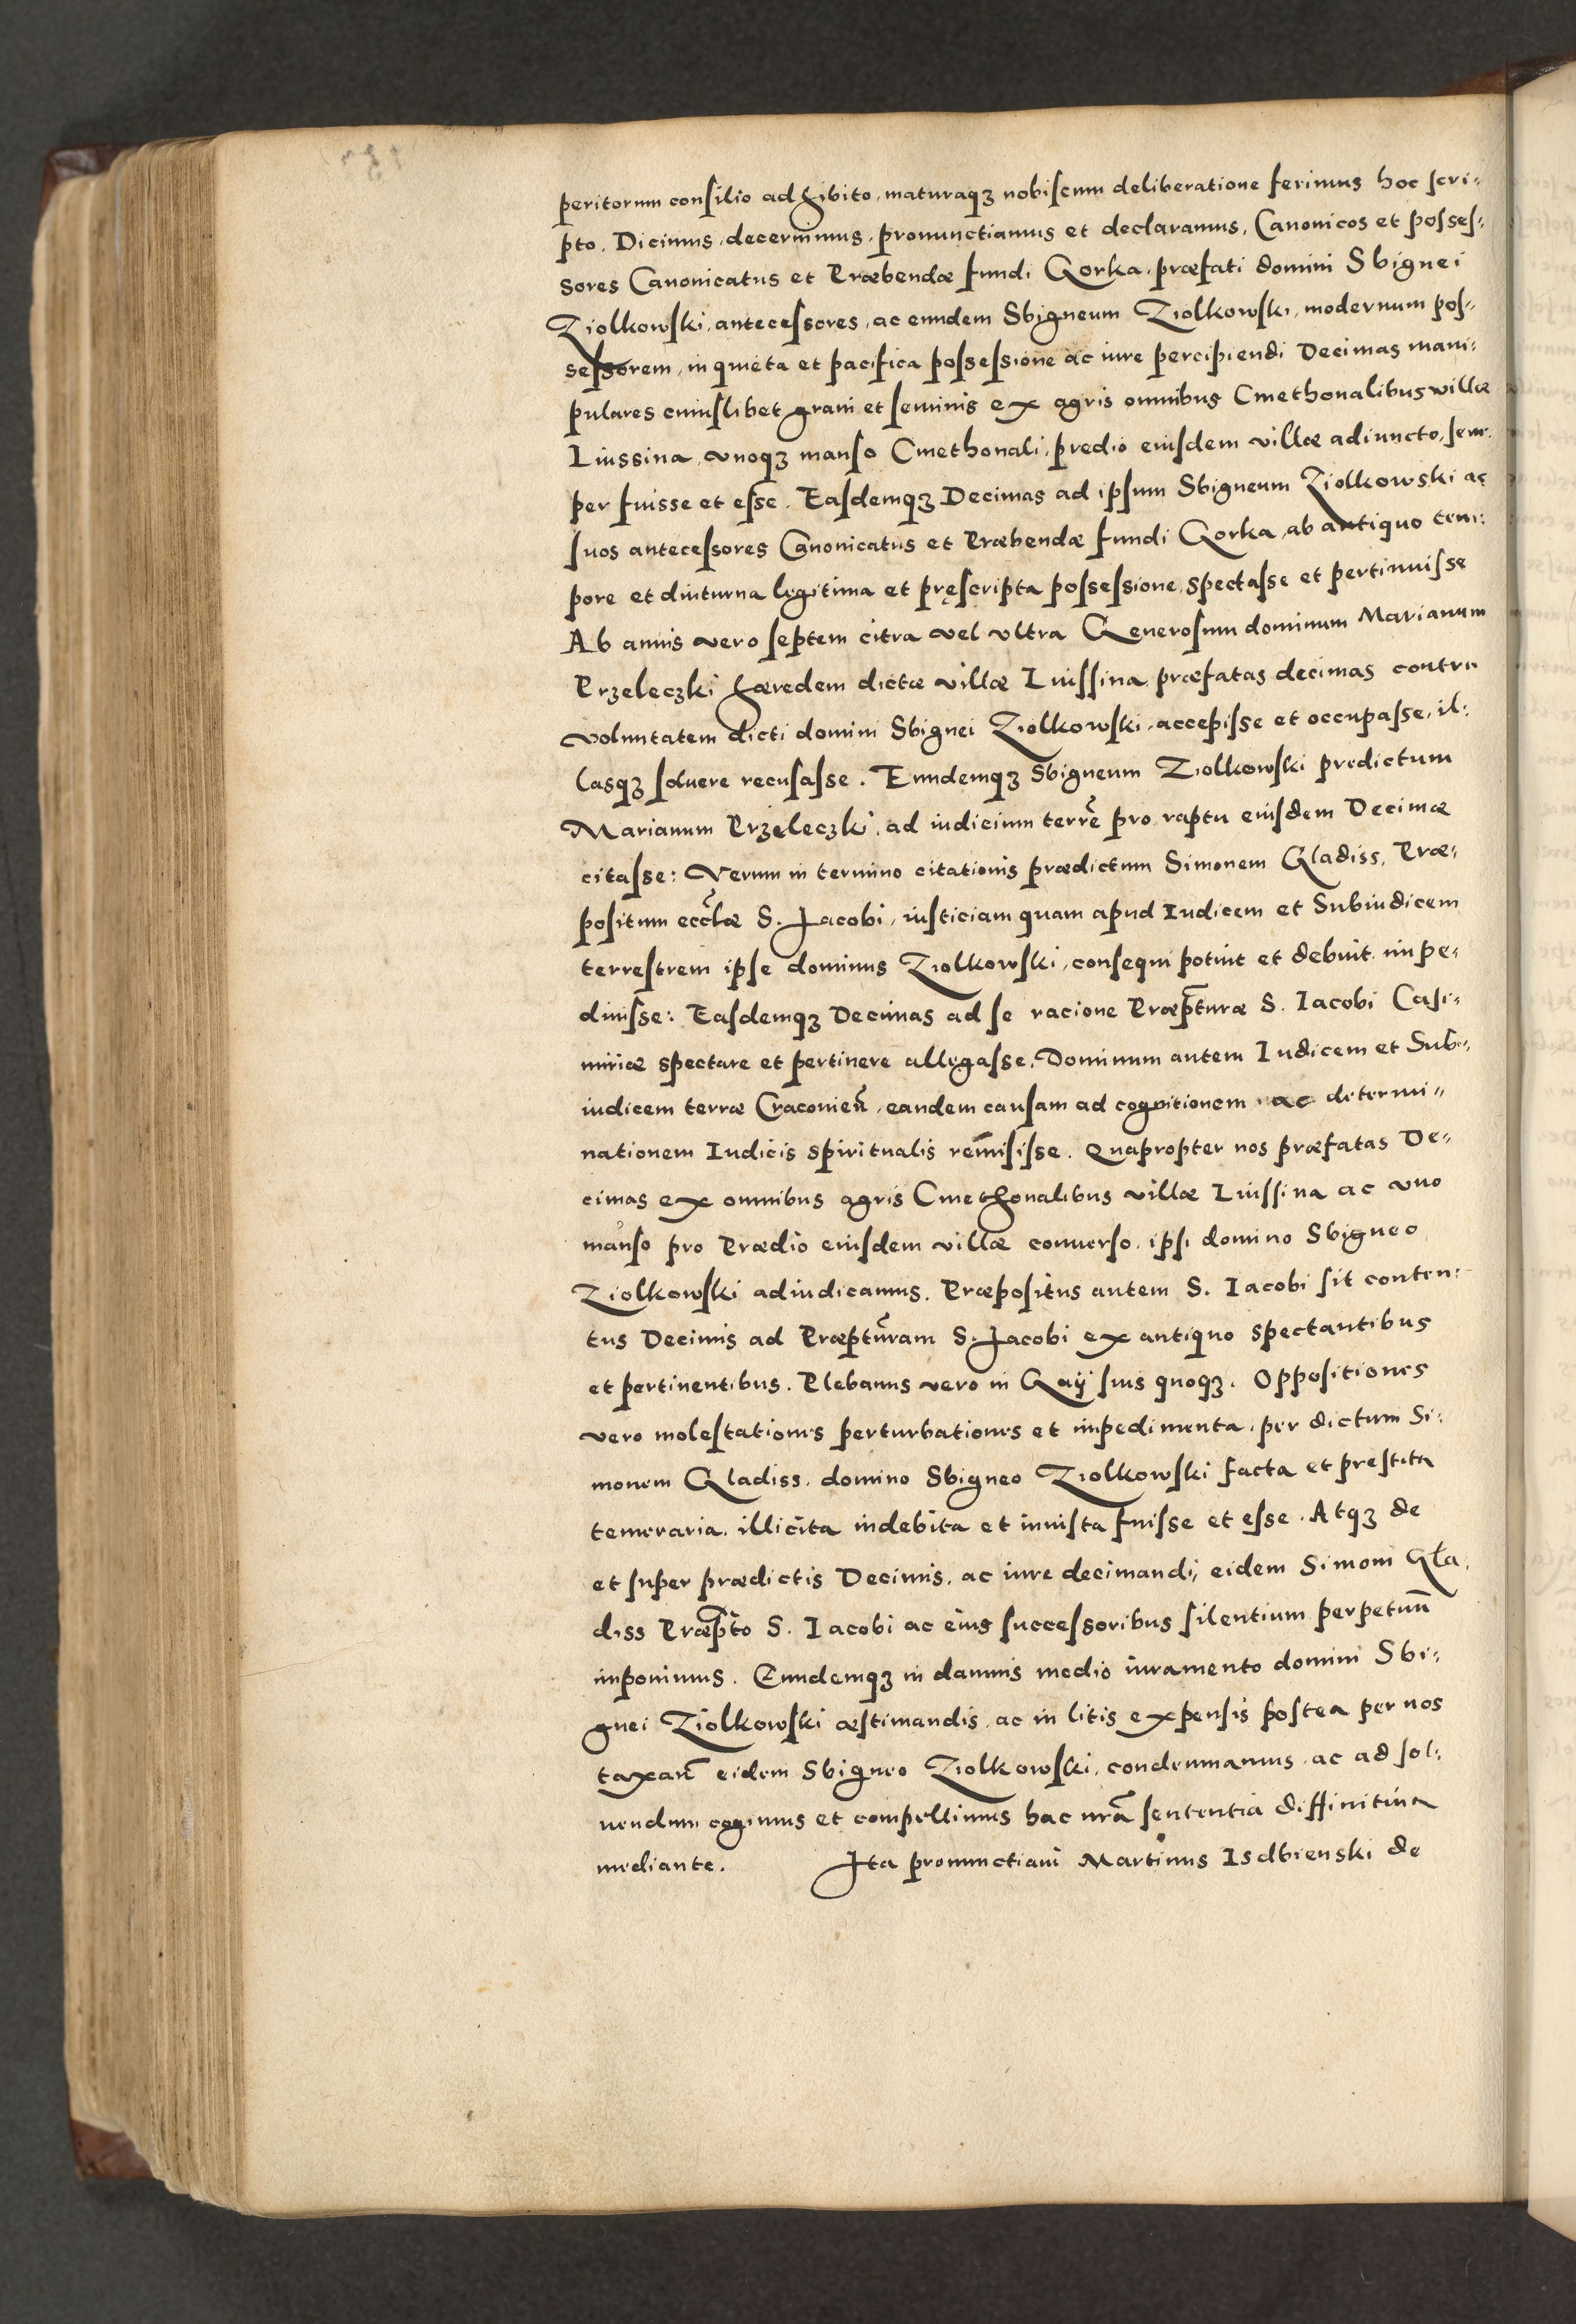 peritorum consilio adhibito, maturaqꝫ nobiscum deliberatione ferimus hoc scri-
pto. Dicimus, decernimus, pronunctiamus et declaramus, Canonicos et posses-
sores Canonicatus et Præbendæ fundi Gorka, præfati domini Sbignei
Ziolkowski, antecessores, ac eundem Sbigneum Ziolkowski, modernum pos-
sessorem, in quieta et pacifica possessione ac iure percipiendi Decimas mani-
pulares cuiuslibet grani et seminis ex agris omnibus Cmethonalibus villæ
Liussina, vnoqꝫ manso Cmethonali, predio eiusdem villæ adiuncto, sem-
per fuisse et esse. Easdemqꝫ Decimas ad ipsum Sbigneum Ziolkowski ac
suos antecessores Canonicatus et Præbendæ fundi Gorka, ab antiquo tem-
pore et diuturna legitima et pręscripta possessione, spectasse et pertinuisse
Ab annis vero septem citra vel vltra Generosum dominum Marianum
Przeleczki hæredem dictæ villæ Liussina, præfatas decimas contra
voluntatem dicti domini Sbignei Ziolkowski, accepisse et occupasse, il-
lasqꝫ soluere recusasse. Eundemqꝫ Sbigneum Ziolkowski predictum
Marianum Przeleczki, ad iudicium terrẽ pro raptu eiusdem Decimæ
citasse: Verum in termino citationis prædictum Simonem Gladiss, Præ-
positum eccĩlæ S. Jacobi, iusticiam quam apud Iudicem et Subiudicem
terrestrem ipse dominus Ziolkowski, consequi potuit et debuit, impe-
diuisse: Easdemqꝫ Decimas ad se racione Præp̃turæ S. Iacobi Casi-
miriæ spectare et pertinere allegasse. Dominum autem Iudicem et Sub-
iudicem terræ Cracovieñ, eandem causam ad cognitionem ac determi-
nationem Iudicis spiritualis remisisse. Quapropter nos præfatas De-
cimas ex omnibus agris Cmethonalibus villæ Liussina ac vno
manso pro Prædio eiusdem villæ conuerso, ipsi domino Sbigneo
Ziolkowski adiudicamus. Præpositus autem S. Iacobi sit conten-
tus Decimis ad Præpt̃uram S. Jacobi ex antiquo spectantibus
et pertinentibus. Plebanus vero in Gay suis quoqꝫ. Oppositiones
vero molestationes perturbationes et impedimenta, per dictum Si-
monem Gladiss, domino Sbigneo Ziolkowski facta et prestita
temeraria, illicita indebita et iniusta fuisse et esse. Atqꝫ de
et super prædictis Decimis, ac iure decimandi, eidem Simoni Gla-
diss Præp̃to S. Iacobi ac eius successoribus silentium perpetuũ
imponimus. Eundemqꝫ in damnis medio iuramento domini Sbi-
gnei Ziolkowski æstimandis, ac in litis expensis postea per nos
taxañ eidem Sbigneo Ziolkowski, condemnamus, ac ad sol-
uendum cogimus et compellimus hac nr̃a sententia diffinitiua
mediante. Ita pronunctiaui Martinus Isdbienski de